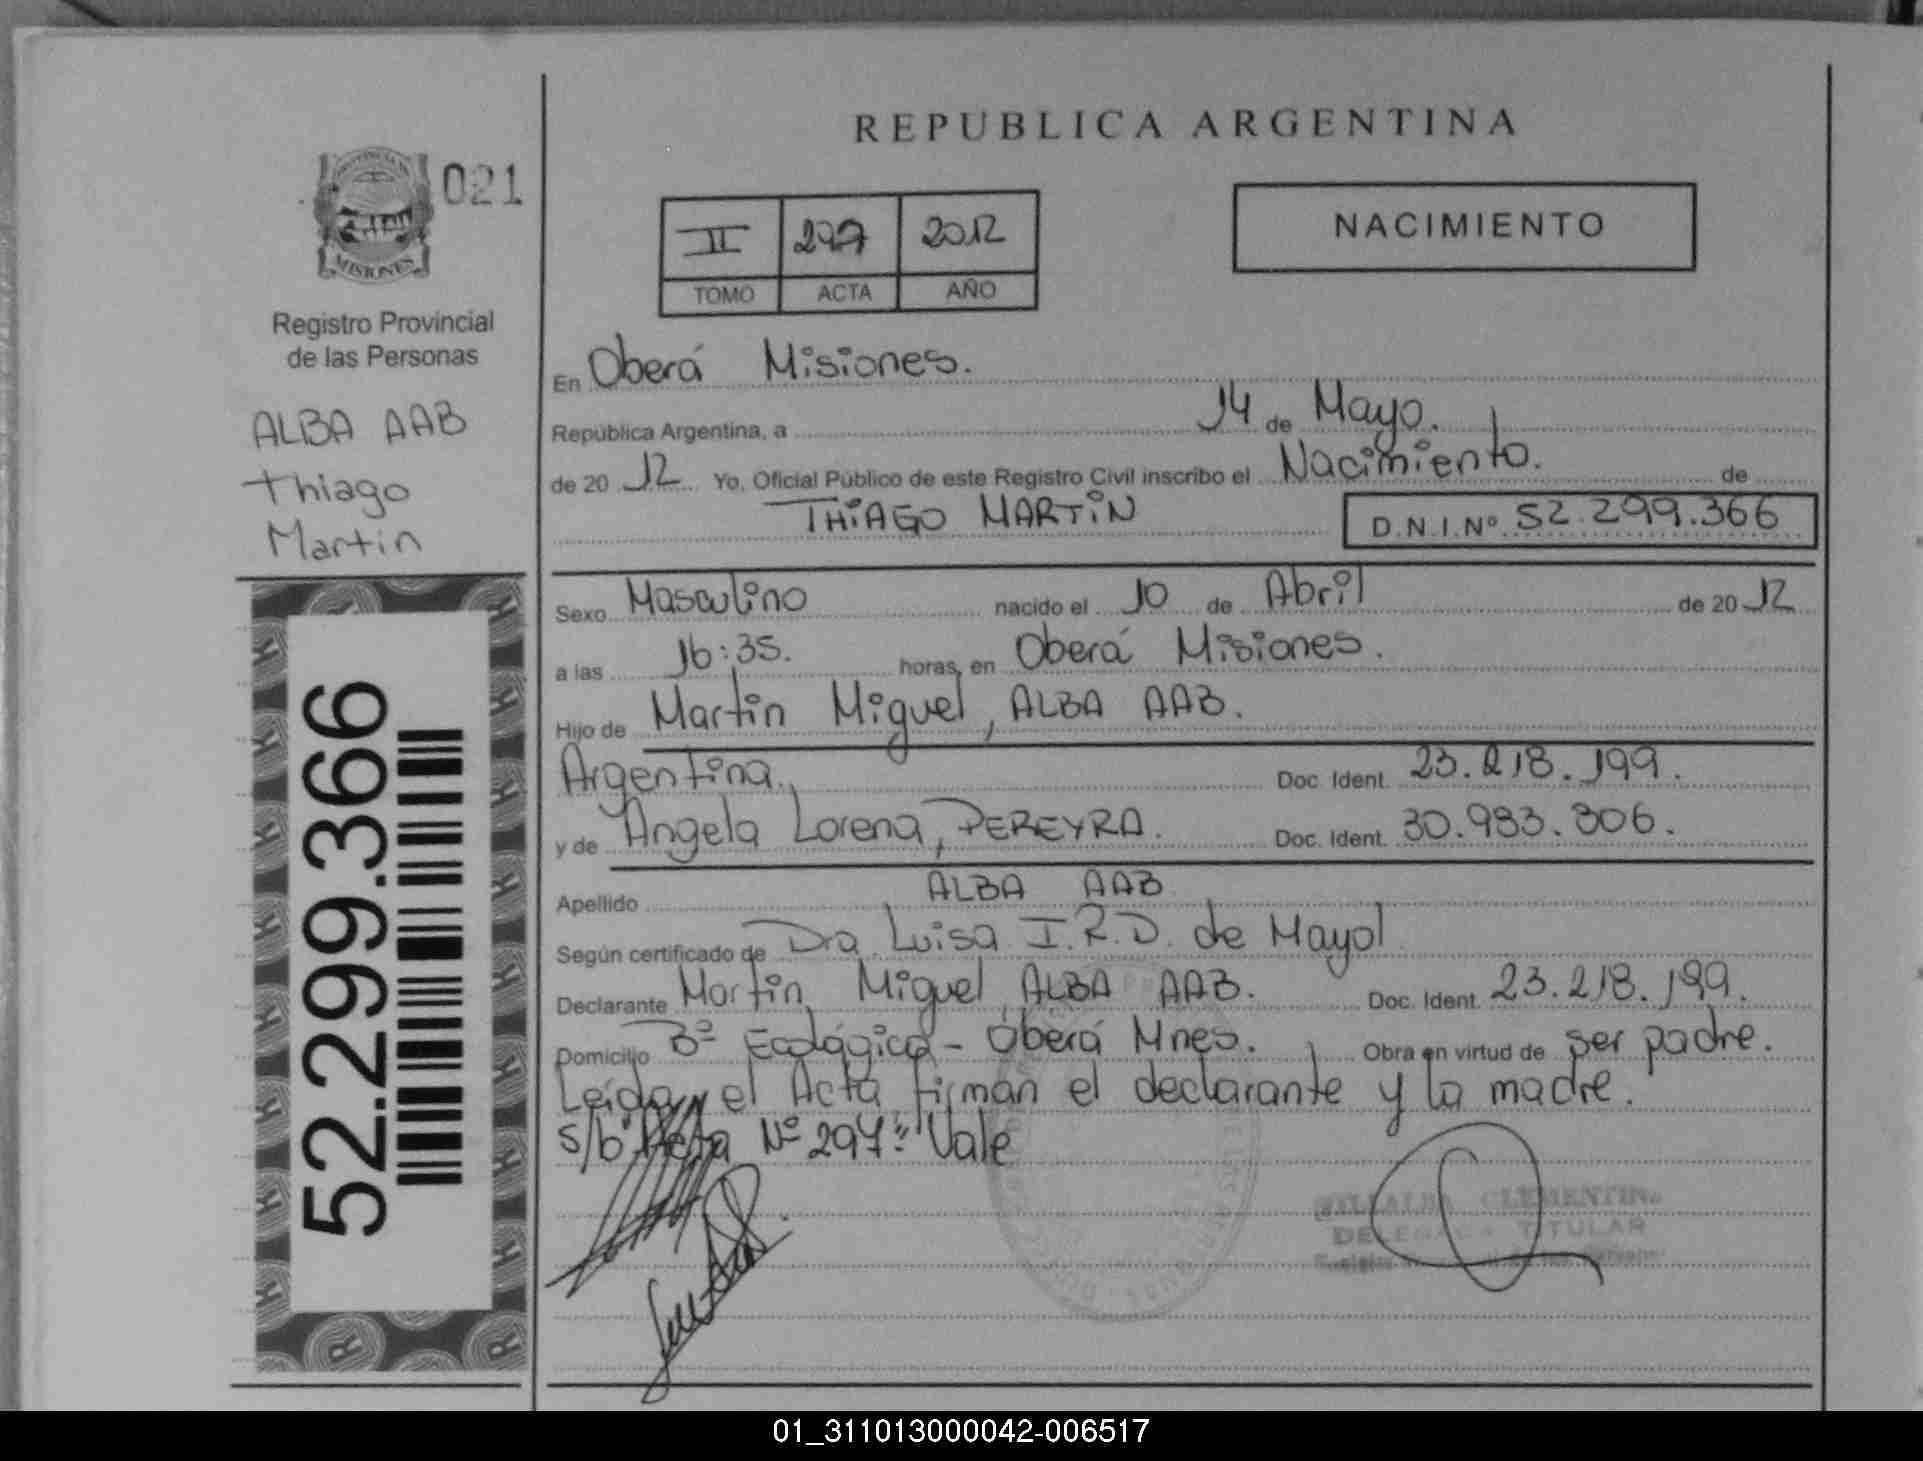 REPUBLICA ARGENTINA
PROVINCIA DE
MISIONES
021
II 297 2012
TOMO ACTA AÑO
NACIMIENTO
Registro Provincial
de las Personas
ALBA AAB
Thiago
Martin
52.299.366
En Oberá Misiones.
República Argentina, a 14 de Mayo.
de 20 12 Yo, Oficial Público de este Registro Civil inscribo el Nacimiento. de
THIAGO MARTIN D.N.I.Nº 52.299.366
Sexo Masculino nacido el 10 de Abril de 20 12
a las 16:35. horas, en Oberá Misiones.
Hijo de Martin Miguel, ALBA AAB.
Argentina. Doc. Ident. 23.218.199.
y de Angela Lorena, PEREYRA. Doc. Ident. 30.983.806.
Apellido ALBA AAB
Según certificado de Dra. Luisa I.R.D. de Mayol
Declarante Martin Miguel ALBA AAB. Doc. Ident. 23.218.199.
Domicilio Bº Ecológico - Oberá Mnes. Obra en virtud de ser padre.
Leída el Acta firman el declarante y la madre.
s/b "Acta Nº 297" Vale
VILLALBA CLEMENTINA
DELEGADA TITULAR
01_311013000042-006517